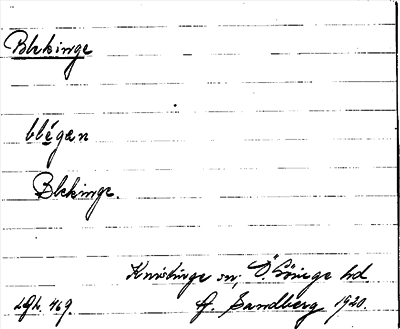 Blekinge
blégæn
Blekinge.
Knislinge sn, Ö. Göinge hd.
LGh. 469. G. Sandberg 1920.